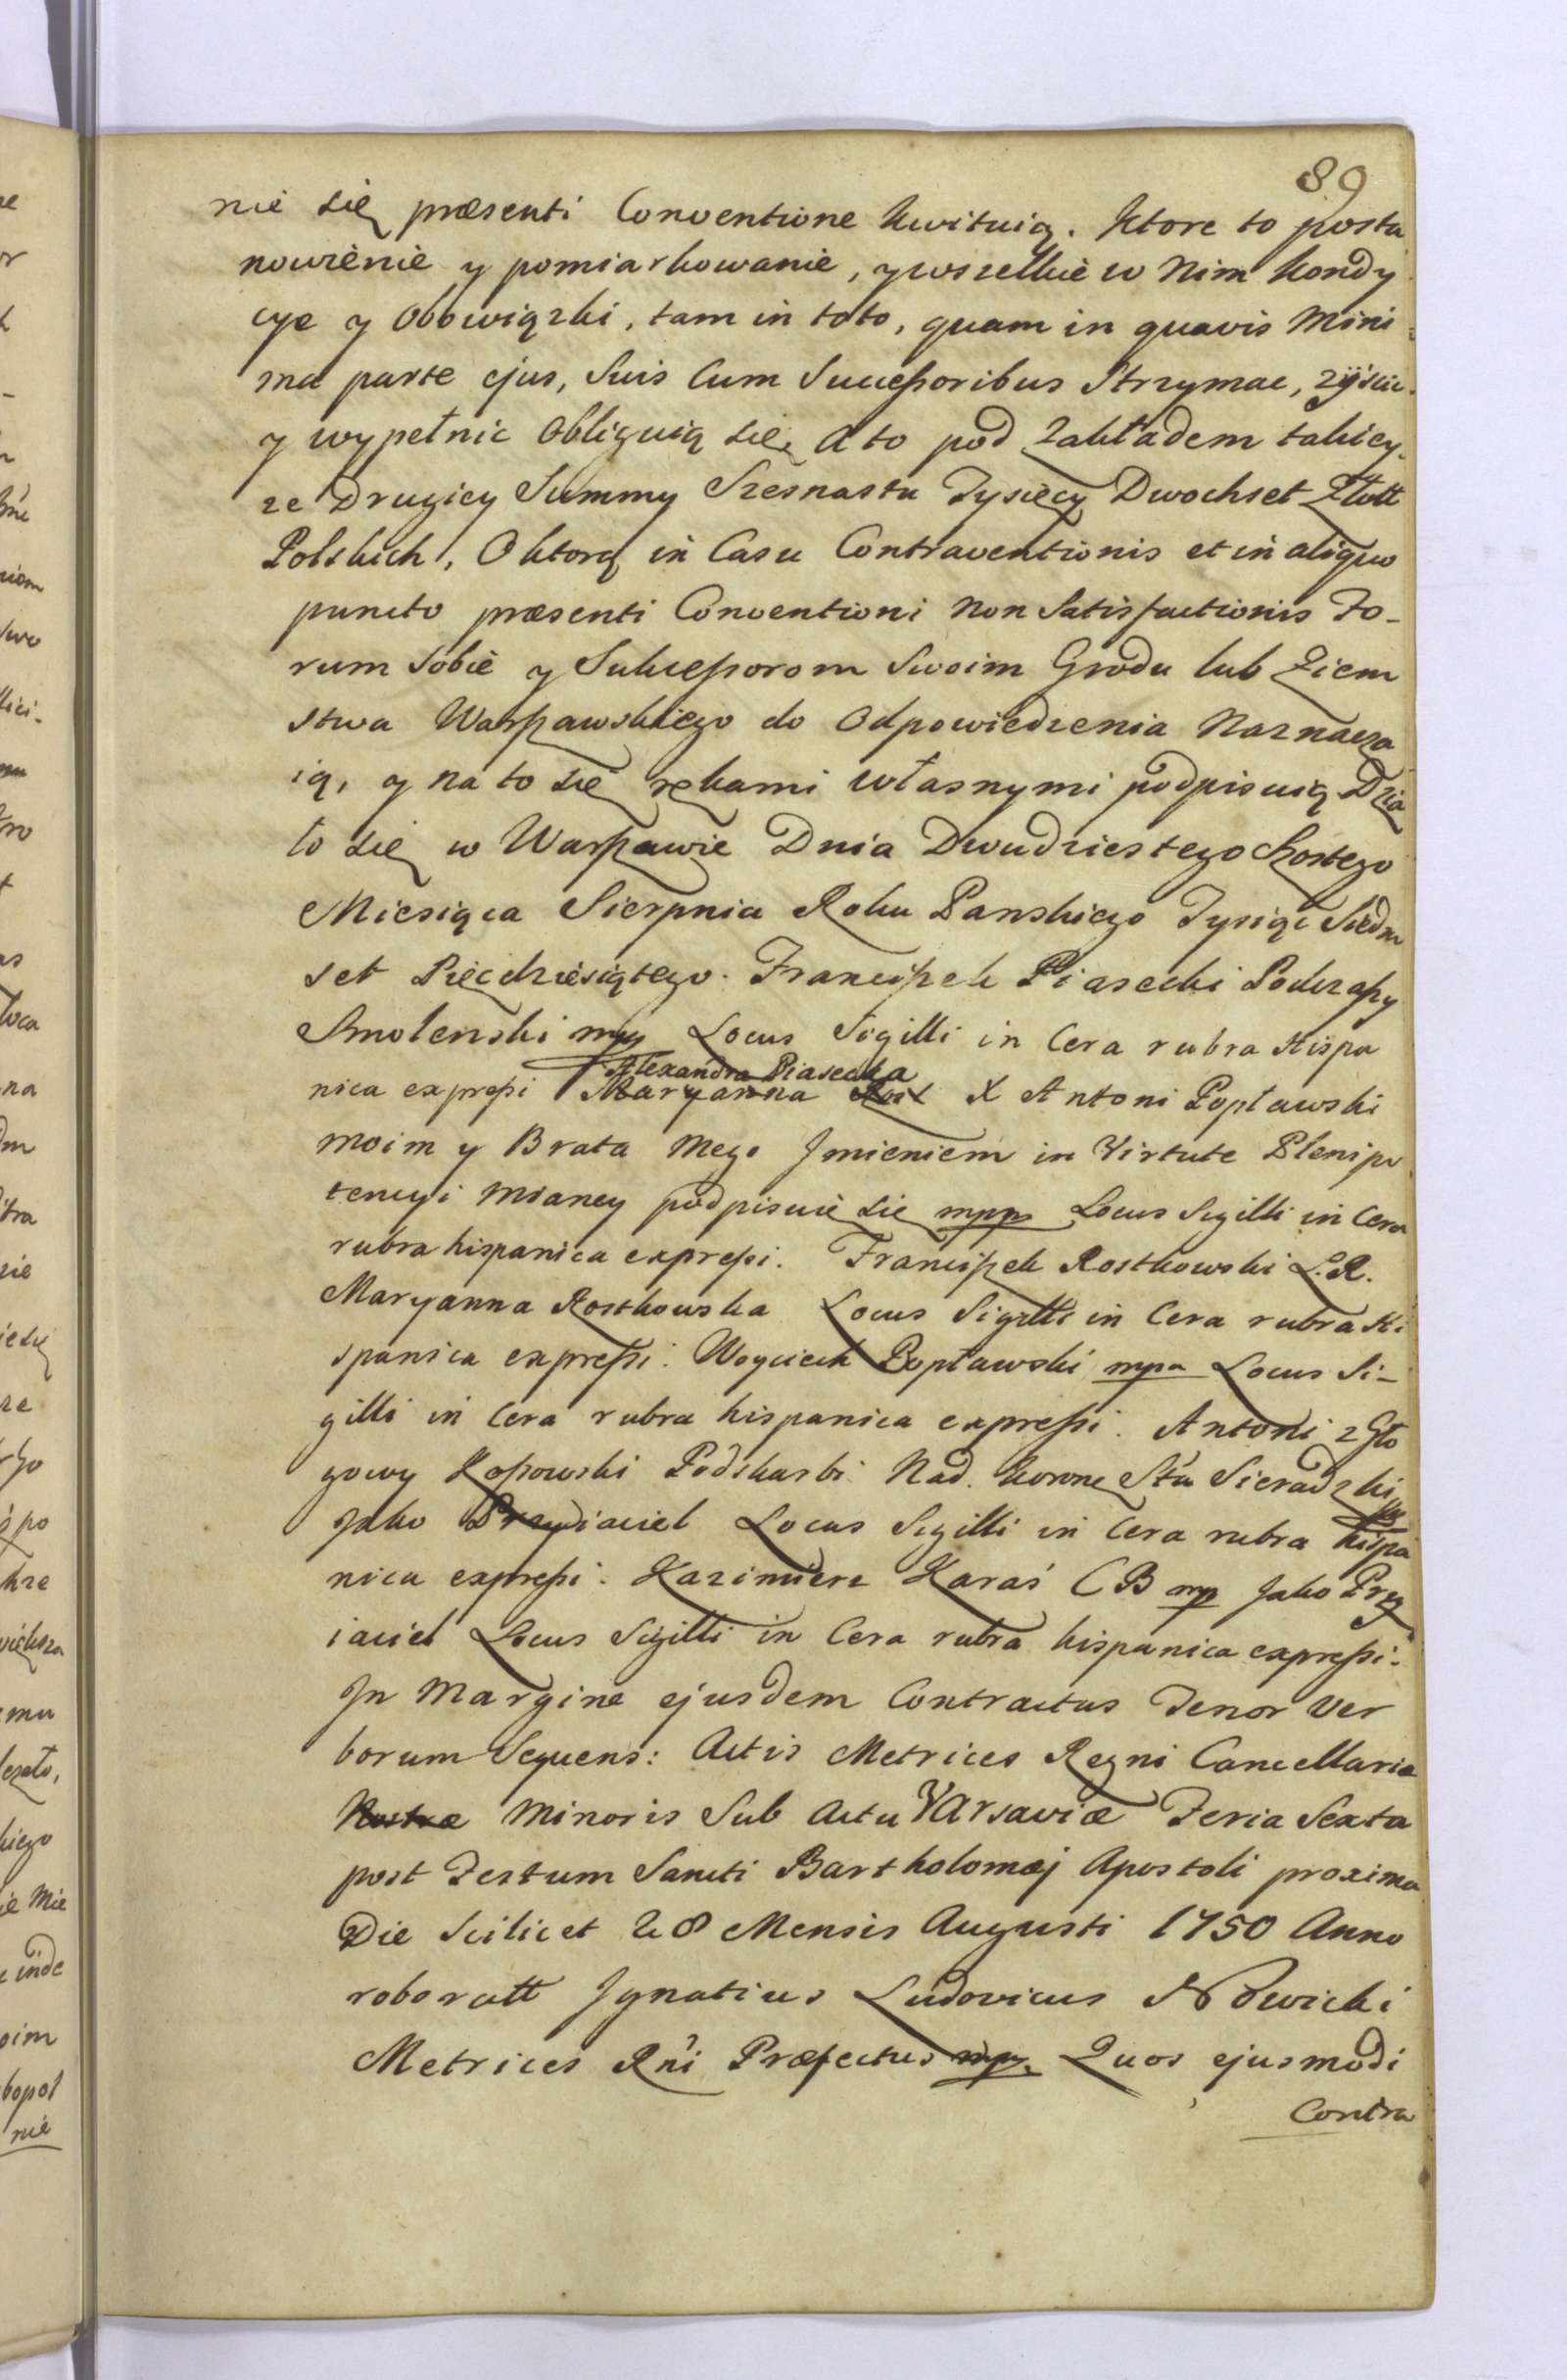 89
nie się præsenti Conventione kwituią. Ktore to posta
nowienie y pomiarkowanie, y wszelkie w Nim kondy
cye y Obowiązki, tam in toto, quam in quavis Mini=
ma parte ejus, Suis Cum Successoribus Strzymac, zyiscic
y wypełnic Obliguią się, A to pod Zakładem takiey-
ze Drugiey Summy Szesnastu Tysięcy Dwochset Złott
Polskich, O ktorą in Casu Contraventionis et in aliquo
puncto præsenti Conventioni Non Satisfactionis Fo-
rum Sobie y Sukcessorom Swoim Grodu lub Ziem
stwa Warszawskiego do Odpowiedzenia Naznacza
ią, y na to się rękami własnymi podpisuią Dzia
ło się w Warszawie Dnia Dwudziestego Szostego
Miesiąca Sierpnia Roku Panskiego Tysiąc Siedm
set Pięcdziesiątego. Franciszek Piasecki Podczaszy
Smolenski mp Locus Sigilli in Cera rubra Hispa
Alexandra Piasecka
nica expressi Maryanna Rost X Antoni Popławski
moim y Brata Mego Jmieniem in Virtute Plenipo
tencyi Mianey podpisuie się mpp Locus Sigilli in Cera
rubra hispanica expressi. Franciszek Rostkowski L.R.
Maryanna Rostkowska Locus Sigilli in Cera rubra Hi
spanica expressi. Woyciech Popławski mpa Locus Si-
gilli in Cera rubra hispanica expressi. Antoni z Gło
gowy Kossowski Podskarbi Nad. Koronę Stta Sieradzki mp
Jako Przyiaciel Locus Sigilli in Cera rubra hispa
nica expressi. Kazimierz Karaś CB mp Jako Przy
iaciel Locus Sigilli in Cera rubra hispanica expressi.
Jn Margine ejusdem Contractus Tenor Ver
borum Sequens: Actis Metrices Regni Cancellariæ
Nostræ Minoris Sub Actu Varsaviæ Feria Sexta
post Festum Sancti Bartholomæj Apostoli proxima
Die Scilicet 28 Mensis Augusti 1750 Anno
roboratt Jgnatius Ludovicus Nowicki
Metrices Rni Præfectus mp. Quos ejusmodi
Contra